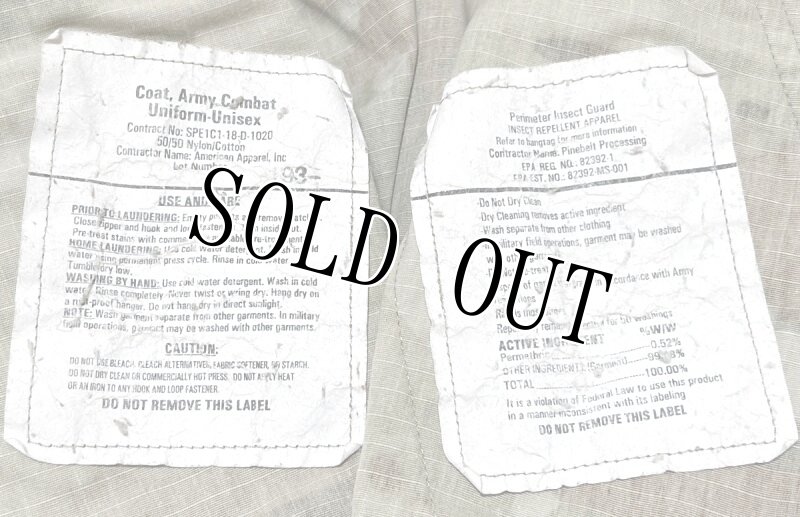 Coat, Army Combat
Uniform-Unisex
Contract No: SPE1C1-18-D-1020
50/50 Nylon/Cotton
Contractor Name: American Apparel, Inc
Lot Number
93-
USE AND CARE
PRIOR TO LAUNDERING:
Close zipper and hook and
Pre-treat stains with
HOME LAUNDERING: Use cold water
water using permanent press cycle. Rinse in cold water
Tumble dry low.
WASHING BY HAND: Use cold water detergent. Wash in cold
water. Rinse completely. Never twist or wring dry. Hang dry on
a rust-proof hanger. Do not hang dry in direct sunlight.
NOTE: Wash garment separate from other garments. In military
field operations, garment may be washed with other garments.
CAUTION:
DO NOT USE BLEACH, BLEACH ALTERNATIVES, FABRIC SOFTENER, OR STARCH.
DO NOT DRY CLEAN OR COMMERCIALLY HOT PRESS. DO NOT APPLY HEAT
OR AN IRON TO ANY HOOK AND LOOP FASTENER.
DO NOT REMOVE THIS LABEL
SOLD OUT
Perimeter Insect Guard
INSECT REPELLENT APPAREL
Refer to hangtag for more information
Contractor Name: Pinebelt Processing
EPA REG. NO.: 82392-1
EPA EST. NO.: 82392-MS-001
-Do Not Dry Clean
-Dry Cleaning removes active ingredient
-Wash separate from other clothing
military field operations, garment may be washed
with other
with Army
for 50 washings
ACTIVE INGREDIENT %W/W
0.52%
OTHER INGREDIENTS
TOTAL 100.00%
It is a violation of Federal Law to use this product
in a manner inconsistent with its labeling
DO NOT REMOVE THIS LABEL